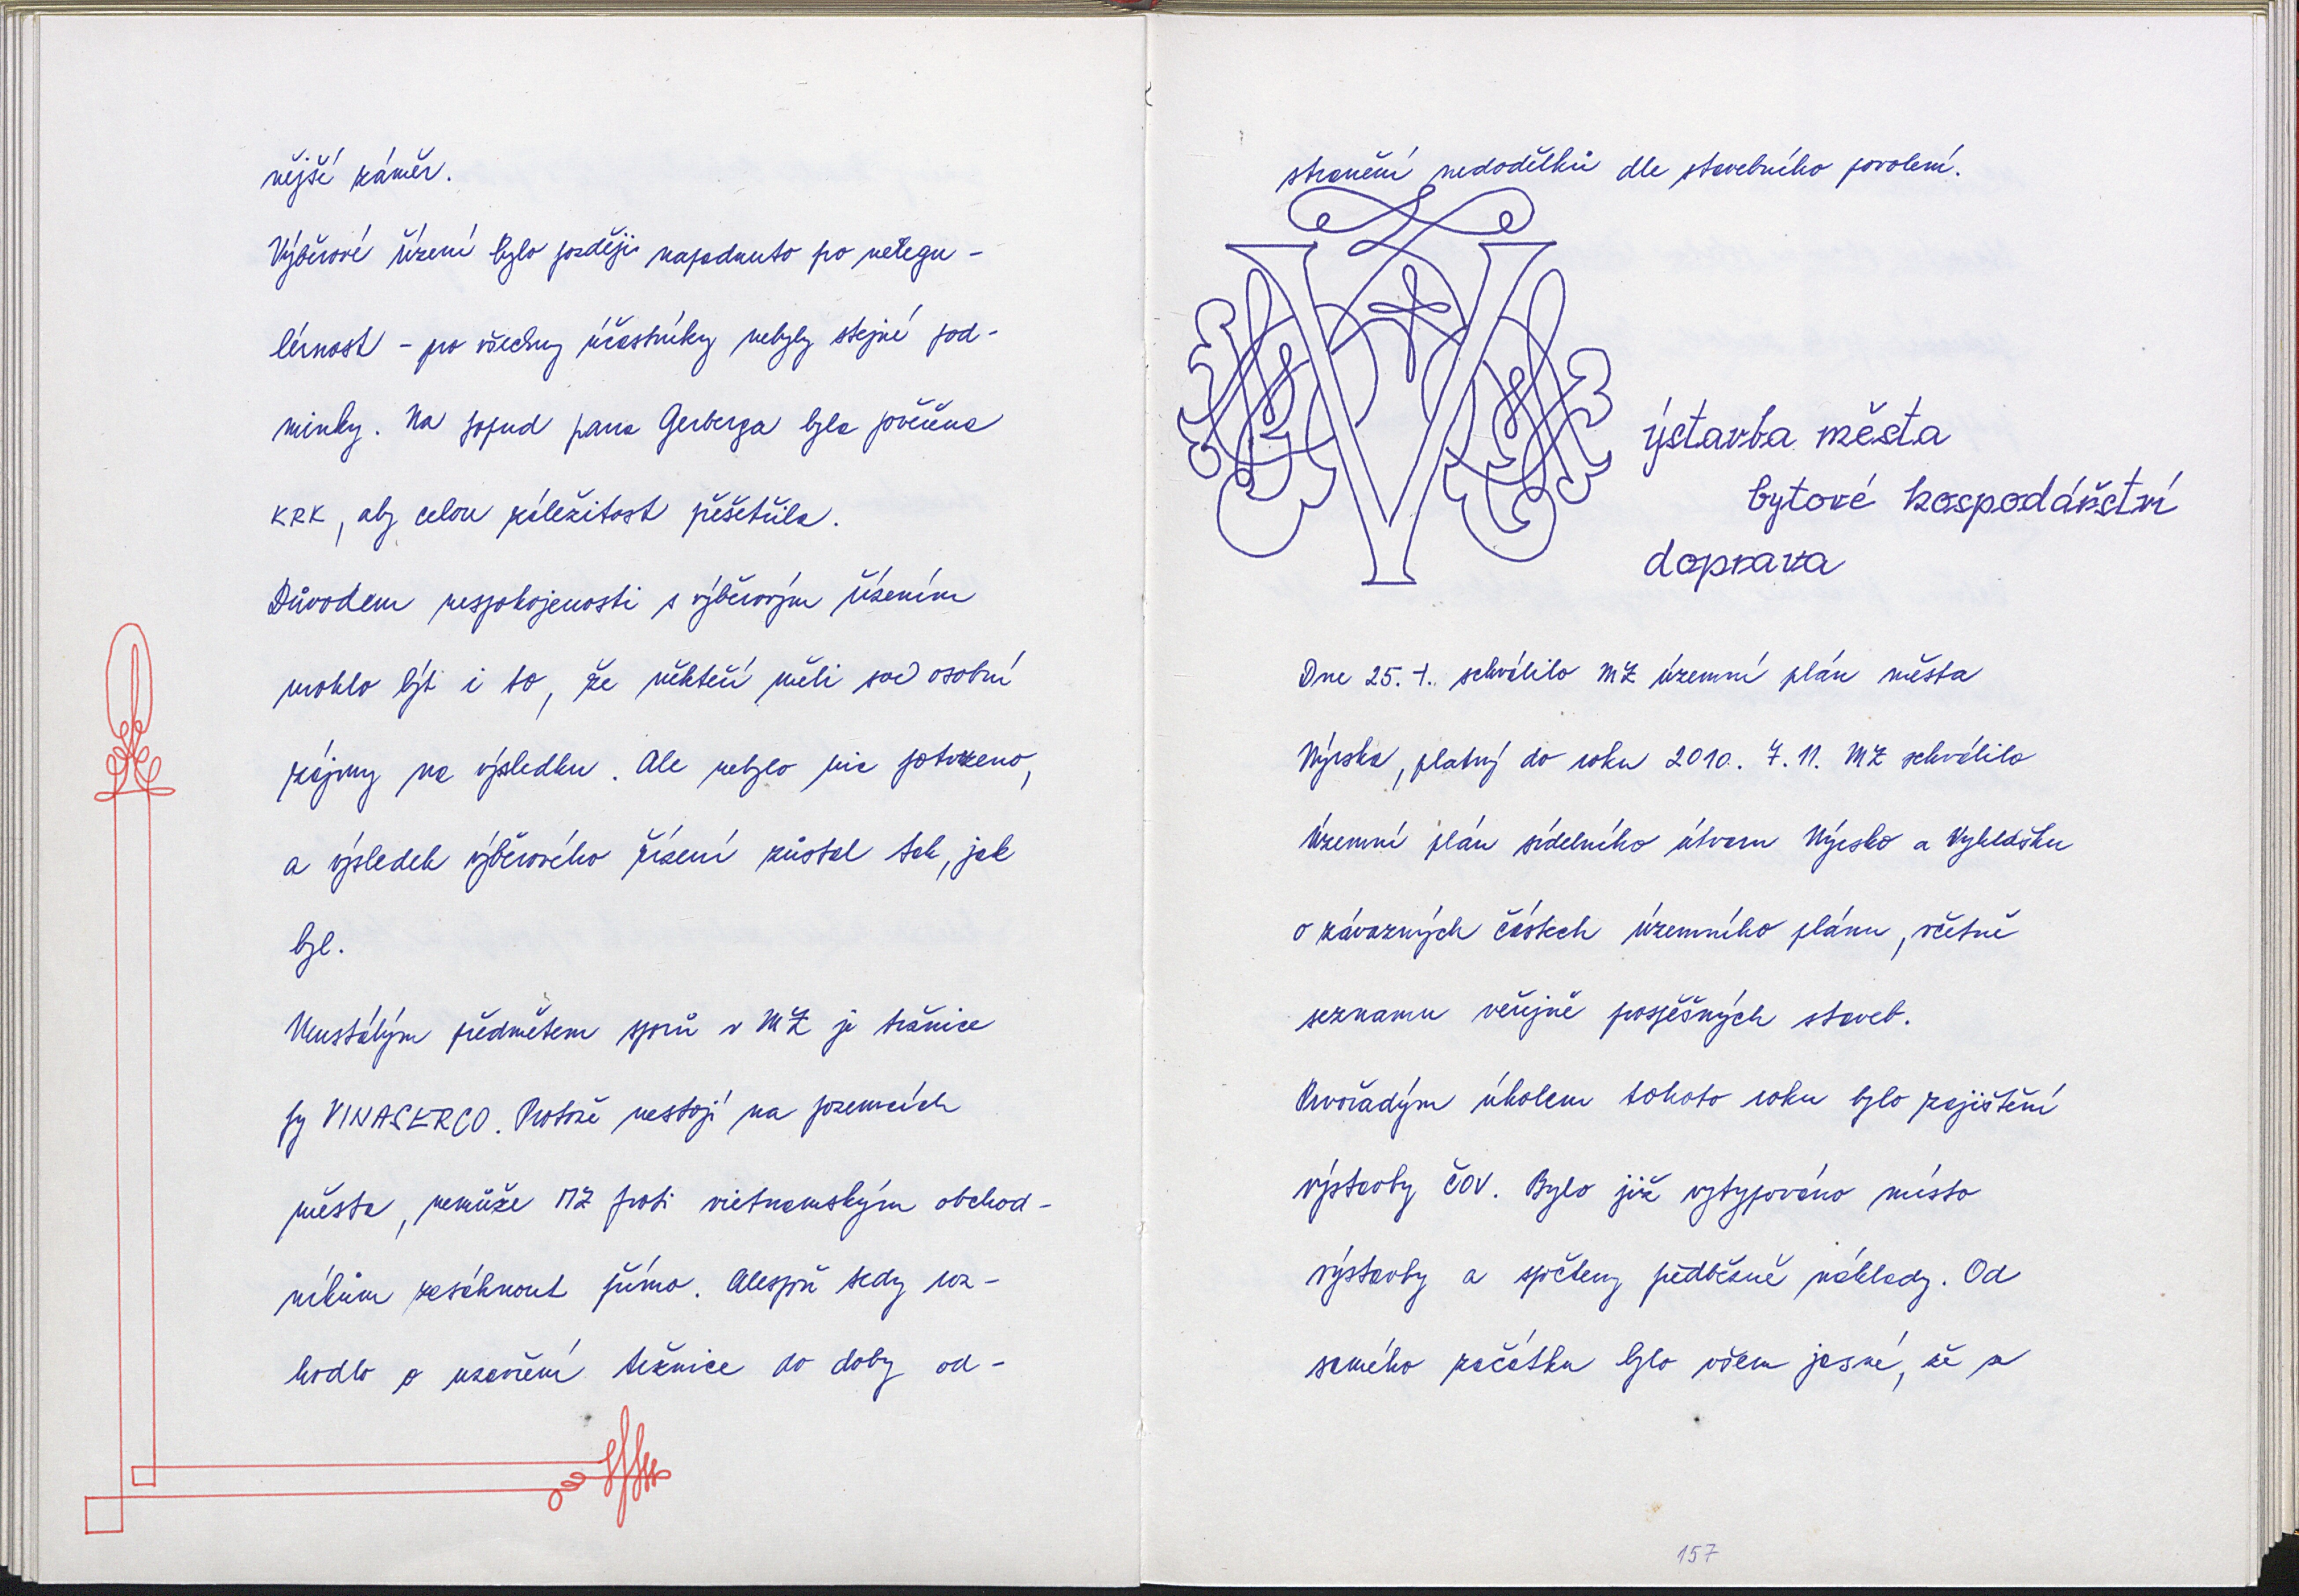 nější záměr.
Výběrové řízení bylo později napadnuto pro neregu-
lérnost - pro všechny účastníky nebyly stejné pod-
mínky. Na popud pana Gerberga byla pověřena
KRK, aby celou záležitost přešetřila.
Důvodem nespokojenosti s výběrovým řízením
mohlo být i to, že někteří měli své osobní
zájmy na výsledku. Ale nebylo nic potvrzeno,
a výsledek výběrového řízení zůstal tak, jak
byl.
Neustálým předmětem sporů v MZ je tržnice
fy VINASERCO. Protože nestojí na pozemcích
města, nemůže MZ proti vietnamským obchod-
níkům zasáhnout přímo. Alespoň tedy roz-
hodlo o uzavření tržnice do doby od-
stranění nedodělků dle stavebního povolení.
Výstavba města
bytové hospodářství
doprava
Dne 25. 4. schválilo MZ územní plán města
Nýrska, platný do roku 2010. 7. 11. MZ schválilo
Územní plán sídelního útvaru Nýrsko a Vyhlášku
o závazných částech územního plánu, včetně
seznamu veřejně prospěšných staveb.
Prvořadým úkolem tohoto roku bylo zajištění
výstavby ČOV. Bylo již vytypováno místo
výstavby a spočteny předběžně náklady. Od
samého začátku bylo všem jasné, že z
157